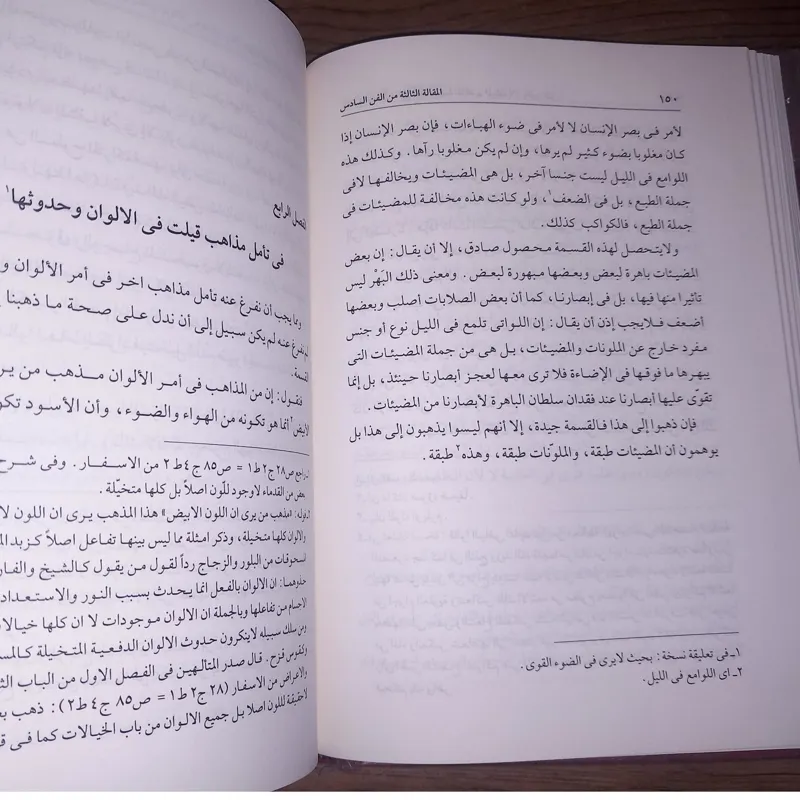 ١٥٠
المقالة الثالثة من الفن السادس
لأمر فى بصر الإنسان لا لأمر فى ضوء الهباءات، فإن بصر الإنسان إذا
كان مغلوبا بضوء كثير لم يرها، وإن لم يكن مغلوبا رآها. وكذلك هذه
اللوامع فى الليل ليست جنسا آخر، بل هى المضيئات ويخالفها لافى
جملة الطبع، بل فى الضعف¹، ولو كانت هذه مخالفة للمضيئات فى
جملة الطبع، فالكواكب كذلك.
ولايتحصل لهذه القسمة محصول صادق، إلا أن يقال: إن بعض
المضيئات باهرة لبعض وبعضها مبهورة لبعض. ومعنى ذلك البَهْر ليس
تأثيرا منها فيها، بل فى إبصارنا، كما أن بعض الصلابات أصلب وبعضها
أضعف فلايجب إذن أن يقال: إن اللواتى تلمع فى الليل نوع أو جنس
مفرد خارج عن الملونات والمضيئات، بل هى من جملة المضيئات التى
يبهرها مافوقها فى الإضاءة فلا ترى معها لعجز أبصارنا حينئذ، بل إنما
تقوّى عليها أبصارنا عند فقدان سلطان الباهرة لأبصارنا من المضيئات.
فإن ذهبوا إلى هذا فالقسمة جيدة، إلا أنهم ليسوا يذهبون إلى هذا بل
يوهمون أن المضيئات طبقة، والملوّنات طبقة، وهذه² طبقة.
١ـ فى تعليقة نسخة: بحيث لايرى فى الضوء القوى.
٢ـ اى اللوامع فى الليل.
الفصل الرابع
فى تأمل مذاهب قيلت فى الالوان وحدوثها¹
ومما يجب أن نفرغ عنه تأمل مذاهب اخر فى أمر الألوان و
لم نفرغ عنه لم يكن سبيل إلى أن ندل على صحة ما ذهبنا
القسمة.
فنقول: إن من المذاهب فى أمر الألوان مذهب من ير
الابيض انما هو تكونه من الهواء والضوء، وأن الأسود تكو
راجع ص٢٨ ج٢ ط١ = ص٨٥ ج٤ ط٢ من الاسفار. وفى شرح
بعض من القدماء لاوجود للّون اصلاً بل كلها متخيّلة.
قوله: «مذهب من يرى ان اللون الابيض» هذا المذهب يرى ان اللون لا
والالوان كلها متخيلة، وذكر امثلة مما ليس بينها تفاعل اصلاً كزبد الم
المسحوقات من البلور والزجاج رداً لقول من يقول كالشيخ والفار
حذوهما: ان الالوان بالفعل انما يحدث بسبب النور والاستعداد
الاجسام من تفاعلها وبالجملة ان الالوان موجودات لا ان كلها خيالا
ومن سلك سبيله لاينكرون حدوث الالوان الدفعية المتخيلة كالمس
وكقوس قزح. قال صدر المتالهين فى الفصل الاول من الباب الث
والاعراض من الاسفار (٢٨ ج٢ ط١ = ص٨٥ ج٤ ط٢): ذهب بع
لاحقيقة للّون اصلا بل جميع الالوان من باب الخيالات كما فى ق